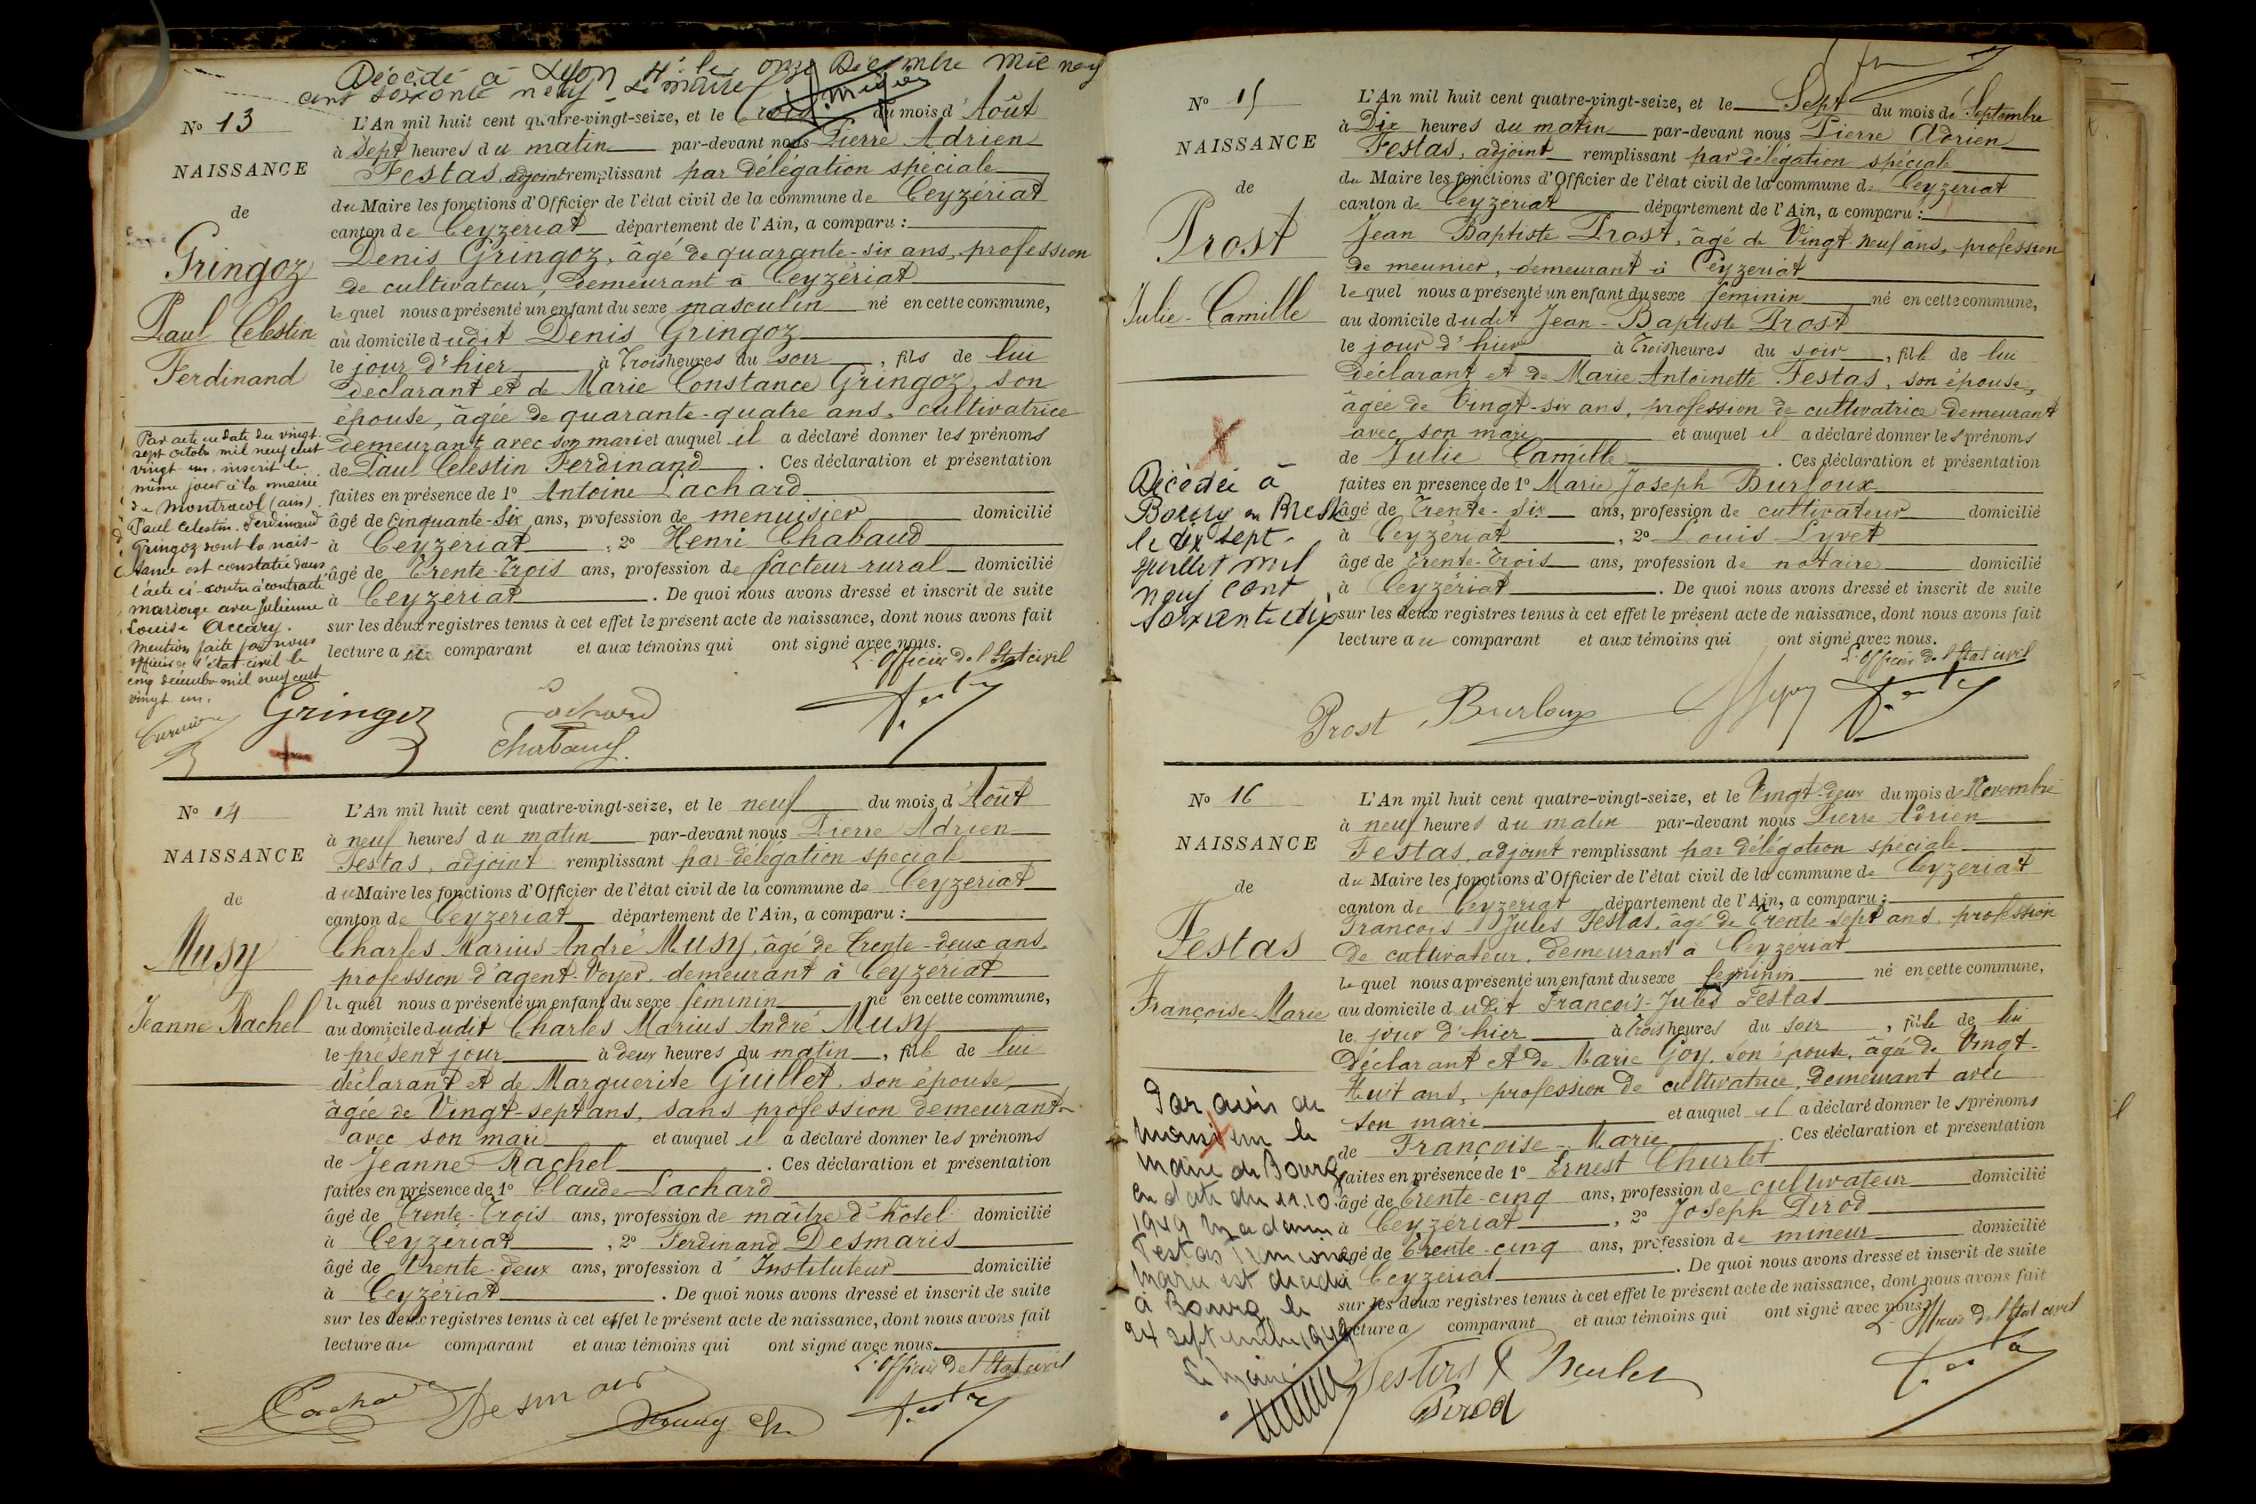 Décédé à Lyon 4e le onze Décembre mil neuf
cent soixante neuf Le maire
No 13
NAISSANCE
de
Gringoz
Paul Celestin
Ferdinand
L'An mil huit cent quatre-vingt-seize, et le trois du mois d'Août
à Sept heures du matin par-devant nous Pierre Adrien
Festas, adjoint remplissant par délégation spéciale
du Maire les fonctions d'Officier de l'état civil de la commune de Ceyzériat
canton de Ceyzeriat département de l'Ain, a comparu :
Denis Gringoz, âgé de quarante-six ans, profession
de cultivateur, demeurant à Ceyzériat
lequel nous a présenté un enfant du sexe masculin né en cette commune,
au domicile dudit Denis Gringoz
le jour d'hier à Trois heures du soir, fils de lui
déclarant et de Marie Constance Gringoz, son
épouse, âgée de quarante-quatre ans, cultivatrice
demeurant avec son mari et auquel il a déclaré donner les prénoms
de Paul Celestin Ferdinand. Ces déclaration et présentation
faites en présence de 1o Antoine Lachard
âgé de Cinquante-Six ans, profession de menuisier domicilié
à Ceyzériat, 2o Henri Chabaud
âgé de Trente-Trois ans, profession de facteur-rural domicilié
à Ceyzeriat. De quoi nous avons dressé et inscrit de suite
sur les deux registres tenus à cet effet le présent acte de naissance, dont nous avons fait
lecture au comparant et aux témoins qui ont signé avec nous.
L'Officier de l'Etat civil
Par acte en date du vingt-
sept octobre mil neuf cent
vingt un, inscrit le
même jour à la mairie
de Montracol (ain)
Paul Celestin Ferdinand
Gringoz dont la nais-
sance est constatée dans
l'acte ci-contre à contracté
mariage avec Julienne
Louise Accary.
Mention faite par nous
officier de l'état-civil le
cinq décembre mil neuf cent
vingt un.
Gringoz
Lachard
Chabaud
No 14
NAISSANCE
de
Musy
Jeanne Rachel
L'An mil huit cent quatre-vingt-seize, et le neuf du mois d'Août
à neuf heures du matin par-devant nous Pierre Adrien
Festas, adjoint remplissant par délégation spéciale
du Maire les fonctions d'Officier de l'état civil de la commune de Ceyzeriat
canton de Ceyzeriat département de l'Ain, a comparu :
Charles Marius André Musy, âgé de Trente-deux ans,
profession d'agent-Voyer, demeurant à Ceyzériat
lequel nous a présenté un enfant du sexe féminin né en cette commune,
au domicile dudit Charles Marius André Musy
le présent jour à deux heures du matin, fille de lui
déclarant et de Marguerite Guillet, son épouse,
âgée de Vingt-sept ans, sans profession demeurant
avec son mari et auquel il a déclaré donner les prénoms
de Jeanne Rachel. Ces déclaration et présentation
faites en présence de 1o Claude Lachard
âgé de Trente-Trois ans, profession de maître d'hôtel domicilié
à Ceyzeriat, 2o Ferdinand Desmaris
âgé de Trente-deux ans, profession d'Instituteur domicilié
à Ceyzeriat. De quoi nous avons dressé et inscrit de suite
sur les deux registres tenus à cet effet le présent acte de naissance, dont nous avons fait
lecture au comparant et aux témoins qui ont signé avec nous.
L'Officier de l'Etat civil
No 15
NAISSANCE
de
Prost
Julie-Camille
L'An mil huit cent quatre-vingt-seize, et le Sept du mois de Septembre
à Dix heures du matin par-devant nous Pierre Adrien
Festas, adjoint remplissant par délégation spéciale
du Maire les fonctions d'Officier de l'état civil de la commune de Ceyzériat
canton de Ceyzériat département de l'Ain, a comparu :
Jean Baptiste Prost, âgé de Vingt-neuf ans, profession
de meunier, demeurant à Ceyzeriat
lequel nous a présenté un enfant du sexe féminin né en cette commune,
au domicile dudit Jean-Baptiste Prost
le jour d'hier à Trois heures du soir, fille de lui
déclarant et de Marie Antoinette Festas, son épouse,
âgée de Vingt-six ans, profession de cultivatrice demeurant
avec son mari et auquel il a déclaré donner les prénoms
de Julie Camille. Ces déclaration et présentation
faites en presence de 1o Marie Joseph Burloux
âgé de Trente-six ans, profession de cultivateur domicilié
à Ceyzériat, 2o Louis Lyvet
âgé de Trente-Trois ans, profession de notaire domicilié
à Ceyzériat. De quoi nous avons dressé et inscrit de suite
sur les deux registres tenus à cet effet le présent acte de naissance, dont nous avons fait
lecture au comparant et aux témoins qui ont signé avec nous.
L'Officier de l'Etat civil
Décédée à
Bourg en Bresse
le dix sept
juillet mil
neuf cent
soixante dix
Prost Burloux
No 16
NAISSANCE
de
Festas
Françoise-Marie
L'An mil huit cent quatre-vingt-seize, et le Vingt-deux du mois de Novembre
à neuf heures du matin par-devant nous Pierre Adrien
Festas, adjoint remplissant par délégation spéciale
du Maire les fonctions d'Officier de l'état civil de la commune de Ceyzeriat
canton de Ceyzeriat département de l'Ain, a comparu :
François-Jules Festas, âgé de Trente-sept ans, profession
de cultivateur, demeurant à Ceyzériat
lequel nous a présenté un enfant du sexe féminin né en cette commune,
au domicile dudit François-Jules Festas
le jour d'hier à Trois heures du soir, fille de lui
déclarant et de Marie Goy, son épouse, âgée de Vingt-
Huit ans, profession de cultivatrice, demeurant avec
son mari et auquel il a déclaré donner les prénoms
de Françoise-Marie. Ces déclaration et présentation
faites en présence de 1o Ernest Churlet
âgé de Trente-cinq ans, profession de cultivateur domicilié
à Ceyzériat, 2o Joseph Pirod
âgé de Trente-cinq ans, profession de mineur domicilié
à Ceyzériat. De quoi nous avons dressé et inscrit de suite
sur les deux registres tenus à cet effet le présent acte de naissance, dont nous avons fait
lecture a comparant et aux témoins qui ont signé avec nous.
L'Officier de l'Etat civil
Par avis de
monsieur le
maire de Bourg
en date du 11.10.
1949 madame
Festas Françoise
Marie est décédée
à Bourg le
24 septembre 1949
Le Maire
Festas
Pirod